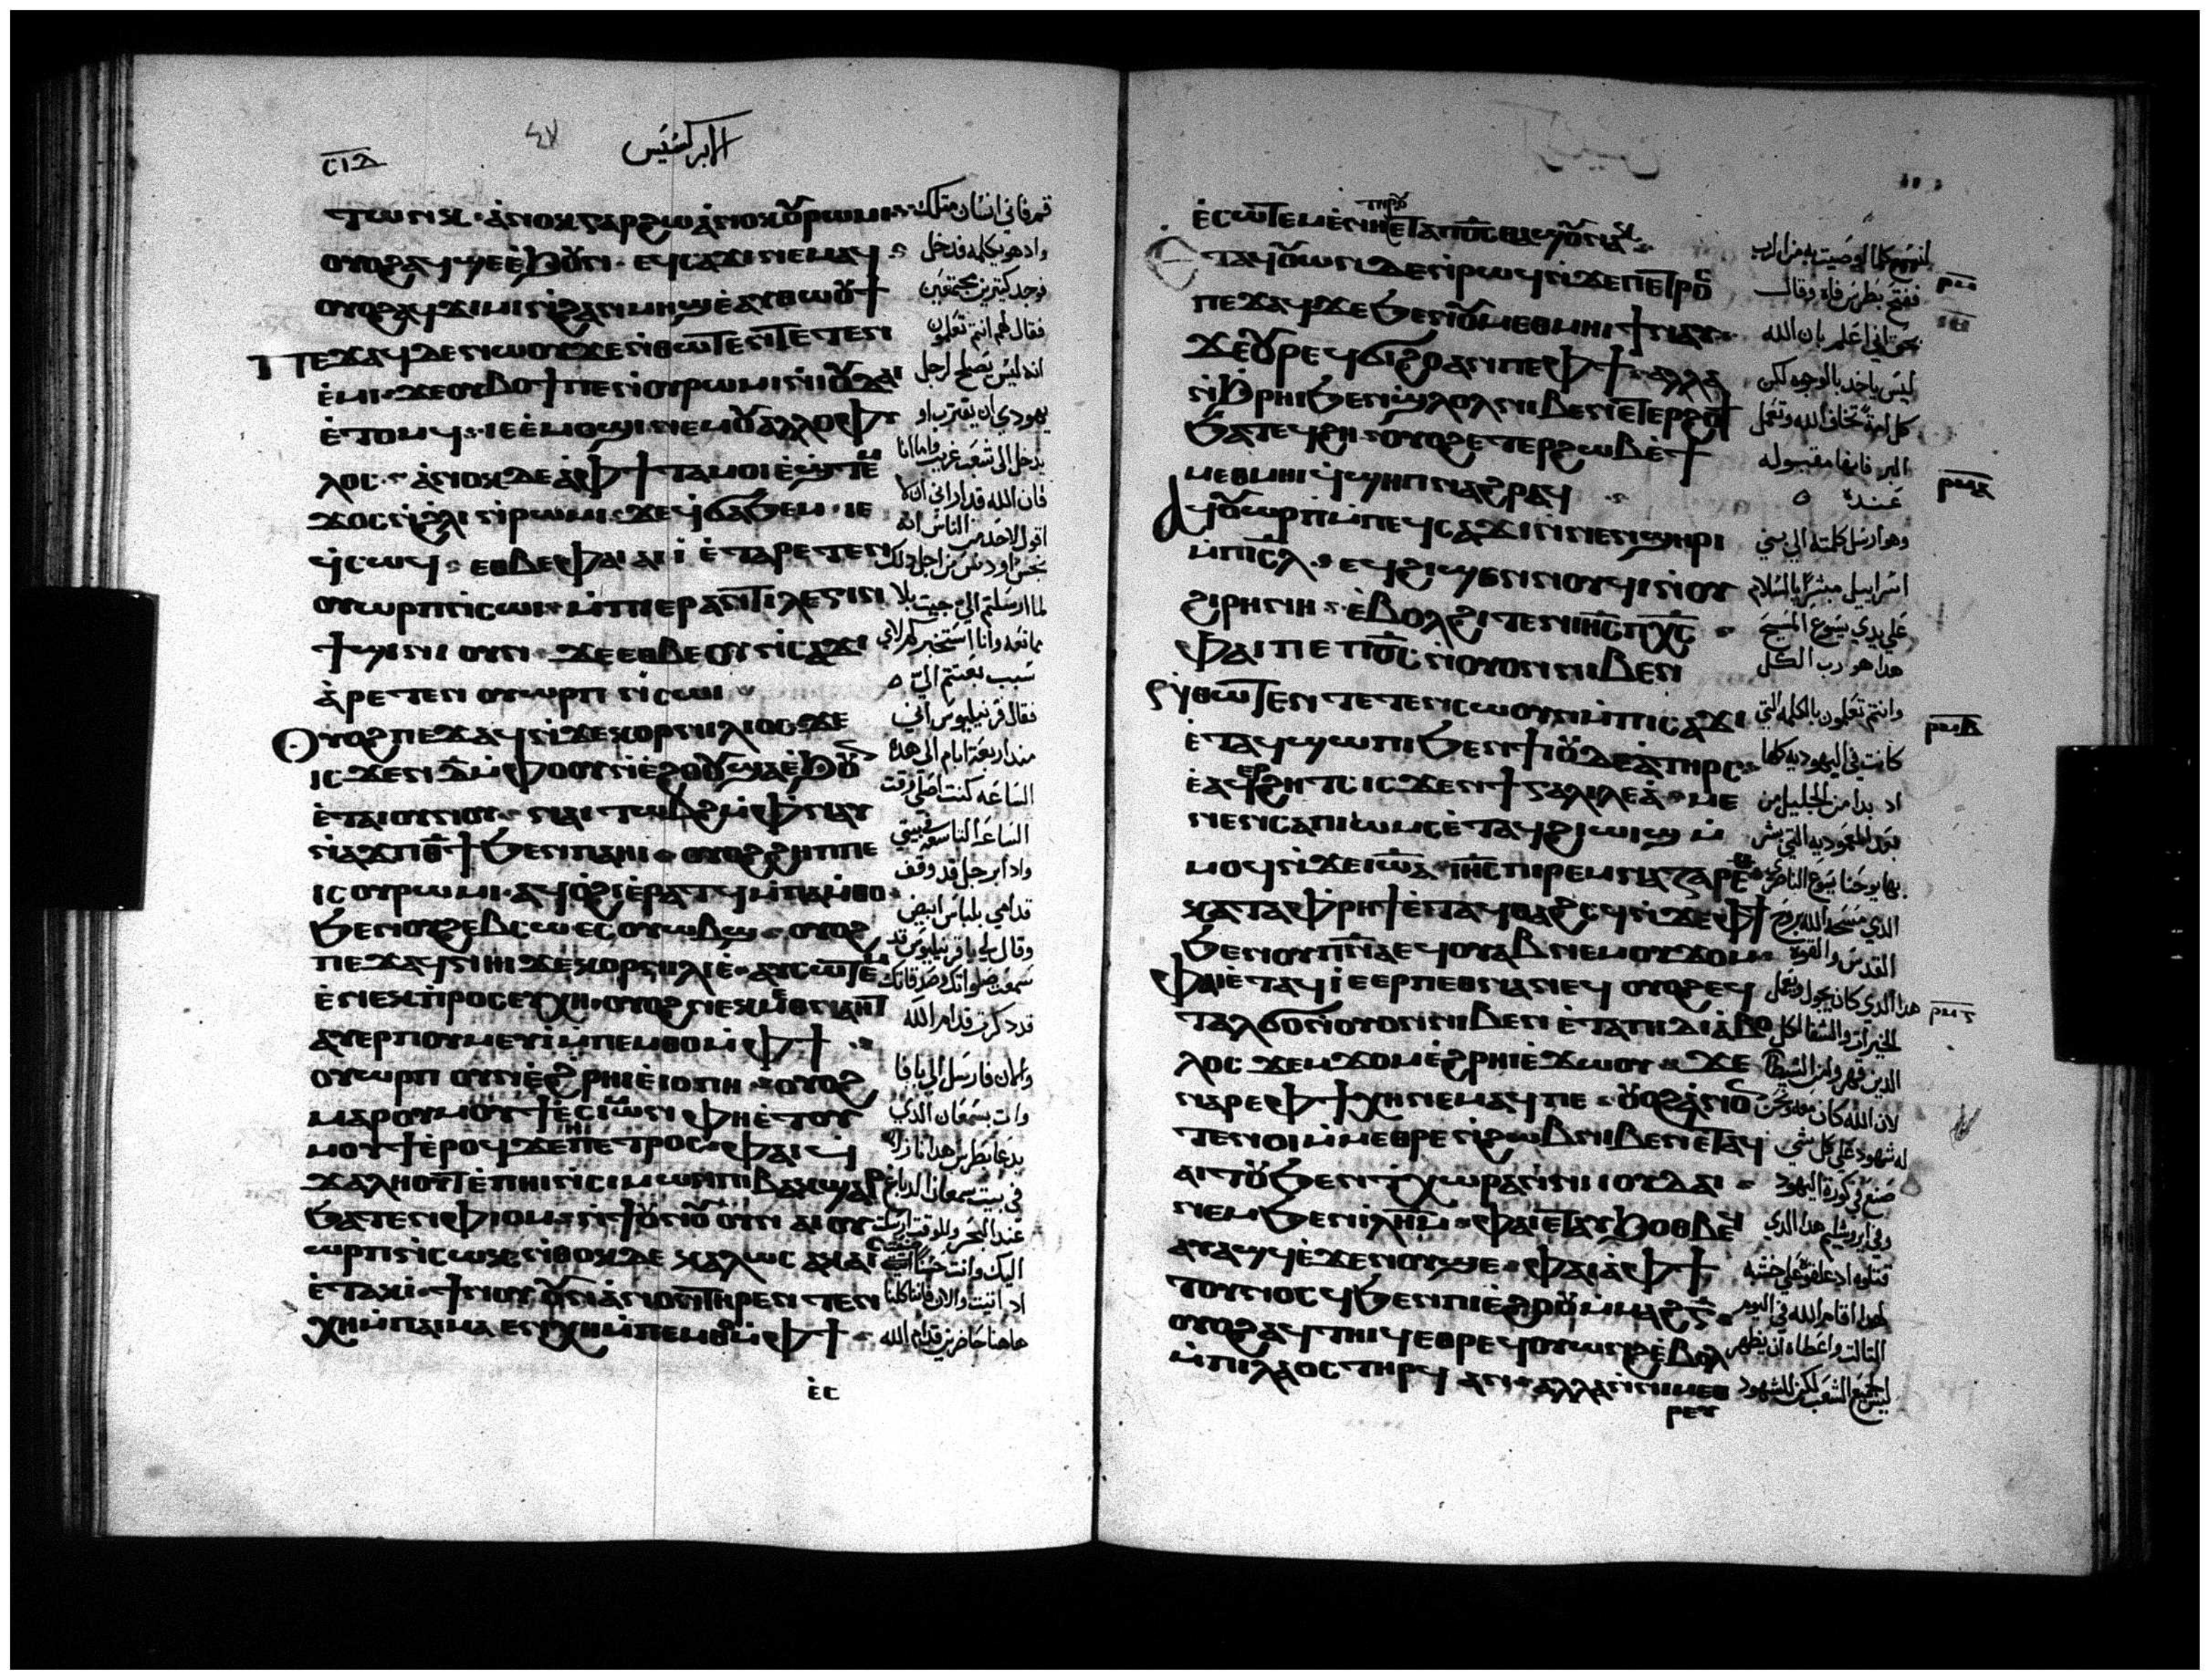 ⲥⲓⲇ
٤٧
الابركسيس
ⲧⲱⲛⲕ · ⲁⲛⲟⲕ ⲅⲁⲣ ϩⲱ ⲁⲛⲟⲕ ⲟⲩⲣⲱⲙⲓ
ⲟⲩⲟϩ ⲁϥϣⲉ ⲉϧⲟⲩⲛ · ⲉϥⲥⲁϫⲓ ⲛⲉⲙⲁϥ
ⲟⲩⲟϩ ⲁϥϫⲓⲙⲓ ⲛϩⲁⲛⲙⲏϣ ⲉⲁⲩⲑⲱⲟⲩϯ
ⲡⲉϫⲁϥ ⲇⲉ ⲛⲱⲟⲩ ϫⲉ ⲛⲑⲱⲧⲉⲛ ⲧⲉⲧⲉⲛ
ⲉⲙⲓ · ϫⲉ ⲟⲩⲃⲟϯ ⲡⲉ ⲛⲟⲩⲣⲱⲙⲓ ⲛⲓⲟⲩⲇⲁⲓ
ⲉⲧⲟⲙϥ · ⲓⲉ ⲉⲙⲟϣⲓ ⲛⲉⲙ ⲟⲩⲁⲗⲗⲟⲫⲩ
ⲗⲟⲥ · ⲁⲛⲟⲕ ⲇⲉ ⲁⲫϯ ⲧⲁⲙⲟⲓ ⲉϣⲧⲉⲙ
ϫⲟⲥ ⲛϩⲗⲓ ⲛⲣⲱⲙⲓ · ϫⲉ ϥϭⲁϧⲉⲙ · ⲓⲉ
ϥⲥⲱϥ · ⲉⲑⲃⲉ ⲫⲁⲓ ⲁⲓⲓ ⲉⲧⲁⲣⲉⲧⲉⲛ
ⲟⲩⲱⲣⲡ ⲛⲥⲱⲓ · ⲙⲡⲓⲉⲣⲁⲛⲧⲓⲗⲉⲅⲓⲛ
ϯϣⲓⲛⲓ ⲟⲩⲛ · ϫⲉ ⲉⲑⲃⲉ ⲟⲩ ⲛⲥⲁϫⲓ
ⲁⲣⲉⲧⲉⲛ ⲟⲩⲱⲣⲡ ⲛⲥⲱⲓ
ⲟⲩⲟϩ ⲡⲉϫⲁϥ ⲛϫⲉ ⲕⲟⲣⲛⲏⲗⲓⲟⲥ ϫⲉ
ⲓⲥϫⲉⲛ ⲇ ⲙⲫⲟⲟⲩ ⲛⲉϩⲟⲟⲩ ϣⲁ ⲉϧⲟⲩⲛ
ⲉⲧⲁⲓⲟⲩⲛⲟⲩ · ⲛⲁⲓⲧⲱⲃϩ ⲙⲫⲛⲁⲩ
ⲛⲁϫⲡ ⲑϯ ϧⲉⲛ ⲡⲁⲏⲓ · ⲟⲩⲟϩ ϩⲏⲡⲡⲉ
ⲓⲥ ⲟⲩⲣⲱⲙⲓ · ⲁϥⲟϩⲓ ⲉⲣⲁⲧϥ ⲙⲡⲁⲙⲑⲟ
ϧⲉⲛ ⲟⲩϩⲉⲃⲥⲱ ⲉⲥⲟⲩⲱⲃϣ · ⲟⲩⲟϩ
ⲡⲉϫⲁϥ ⲛⲏⲓ ϫⲉ ⲕⲟⲣⲛⲏⲗⲓⲉ · ⲁⲩⲥⲱⲧⲉⲙ
ⲉⲛⲉⲕⲡⲣⲟⲥⲉⲩⲭⲏ · ⲟⲩⲟϩ ⲛⲉⲕⲙⲉⲑⲛⲁⲏⲧ
ⲁⲩⲉⲣⲡⲟⲩⲙⲉⲩⲓ ⲙⲡⲉⲙⲑⲟ ⲙⲫϯ
ⲟⲩⲱⲣⲡ ⲟⲩⲛ ⲉϩⲣⲏⲓ ⲉⲓⲟⲡⲏ · ⲟⲩⲟϩ
ⲙⲁⲣⲟⲩⲙⲟⲩϯ ⲉⲥⲓⲙⲱⲛ ⲫⲏ ⲉⲧⲟⲩ
ⲙⲟⲩϯ ⲉⲣⲟϥ ϫⲉ ⲡⲉⲧⲣⲟⲥ · ⲫⲁⲓ ϥ
ϫⲁⲗⲏⲟⲩⲧ ⲉⲡⲏⲓ ⲛⲥⲓⲙⲱⲛ ⲡⲓⲃⲁⲕϣⲁⲣ
ϧⲁⲧⲉⲛ ⲫⲓⲟⲙ · ⲛϯⲟⲩⲛⲟⲩ ⲟⲩⲛ ⲁⲓⲟⲩ
ⲱⲣⲡ ⲛⲥⲱⲕ ⲛⲑⲟⲕ ⲇⲉ ⲕⲁⲗⲱⲥ ⲁⲕⲁⲓ
ⲉⲧⲁⲕⲓ · ϯⲛⲟⲩ ⲟⲩⲛ ⲁⲛⲟⲛ ⲧⲏⲣⲉⲛ ⲧⲉⲛ
ⲭⲏ ⲙⲡⲁⲓⲙⲁ ⲉⲛⲭⲏ ⲙⲡⲉⲙⲑⲟ ⲙⲫϯ
ⲉⲥ
قم فاني انسان مثلك
واد هو يكلمه فدخل
فوجد كتيرين مجتمعين
فقال لهم انتم تعلمون
انه ليس يصلح لرجل
يهودي ان يقترب او
يدخل الى شعب غريب واما انا
فان الله قد اراني ان لا
اقول لاحد من الناس انه
نجس او دنس من اجل دلك
لما ارسلتم الي جيت بلا
ممانعه وانا استخبركم لاي
سبب بعتتم الي
فقال قرنيليوس اني
مند اربعة ايام الى هده
الساعه كنت اصلي وقت
الساعه التاسعه في بيتي
واد ابرجل قد وقف
قدامي بلباس ابيض
وقال لي يا قرنيليوس قد
سمعت صلواتك وصدقاتك
قد دكرت قدام الله
والان فارسل الي يافا
وات بسمعان الدي
يدعا بطرس هدا نازل
في بيت سمعان الدباغ
عند البحر وللوقت ارسلت
اليك وانت حسنا
اد اتيت والان فاننا كلنا
هاهنا حاضرين قدام الله
ⲉⲥⲱⲧⲉⲙ ⲉⲛⲏ ⲧⲏⲣⲟⲩ ⲉⲧⲁ ⲡⲟⲥ ⲑⲁϣⲟⲩ ⲛⲁⲕ
ⲉⲧⲁϥⲟⲩⲱⲛ ⲇⲉ ⲛⲣⲱϥ ⲛϫⲉ ⲡⲉⲧⲣⲟⲥ
ⲡⲉϫⲁϥ ϫⲉ ϧⲉⲛ ⲟⲩⲙⲉⲑⲙⲏⲓ ϯⲛⲁⲩ
ϫⲉ ⲟⲩⲣⲉϥϭⲓϩⲟ ⲁⲛ ⲡⲉ ⲫϯ · ⲁⲗⲗⲁ
ⲛϧⲣⲏⲓ ϧⲉⲛ ϣⲗⲟⲗ ⲛⲓⲃⲉⲛ ⲉⲧⲉⲣϩⲟϯ
ϧⲁⲧⲉϥϩⲏ · ⲟⲩⲟϩ ⲉⲧⲉⲣϩⲱⲃ ⲉϯ
ⲙⲉⲑⲙⲏⲓ ϥϣⲏⲡ ⲛⲁϩⲣⲁϥ
ⲁϥⲟⲩⲱⲣⲡ ⲙⲡⲉϥⲥⲁϫⲓ ⲛⲛⲉⲛϣⲏⲣⲓ
ⲙⲡⲓⲥⲗ · ⲉϥϩⲓϣⲉⲛⲛⲟⲩϥⲓ ⲛⲟⲩ
ϩⲓⲣⲏⲛⲏ · ⲉⲃⲟⲗ ϩⲓⲧⲉⲛ ⲓⲏⲥ ⲡⲭⲥ
ⲫⲁⲓ ⲡⲉ ⲡⲟⲥ ⲛⲟⲩⲟⲛ ⲛⲓⲃⲉⲛ
ⲛⲑⲱⲧⲉⲛ ⲧⲉⲧⲉⲛⲥⲱⲟⲩⲛ ⲙⲡⲓⲥⲁϫⲓ
ⲉⲧⲁϥϣⲱⲡⲓ ϧⲉⲛ ϯⲓⲟⲩⲇⲉⲁ ⲧⲏⲣⲥ
ⲉⲁϥⲉⲣϩⲏⲧⲥ ⲓⲥϫⲉⲛ ϯⲅⲁⲗⲓⲗⲉⲁ · ⲙⲉ
ⲛⲉⲛⲥⲁ ⲡⲓⲱⲙⲥ ⲉⲧⲁϥϩⲓⲱⲓϣ ⲙ
ⲙⲟϥ ⲛϫⲉ ⲓⲱⲁ · ⲓⲏⲥ ⲡⲓⲣⲉⲙⲛⲁⲍⲁⲣⲉⲑ
ⲕⲁⲧⲁ ⲫⲣⲏϯ ⲉⲧⲁϥⲑⲁϩⲥϥ ⲛϫⲉ ⲫϯ
ϧⲉⲛ ⲟⲩⲡⲛⲁ ⲉϥⲟⲩⲁⲃ ⲛⲉⲙ ⲟⲩϫⲟⲙ
ⲫⲁⲓ ⲉⲧⲁϥⲓ ⲉⲉⲣⲡⲉⲑⲛⲁⲛⲉϥ ⲟⲩⲟϩ ⲉϥ
ⲧⲁⲗϭⲟ ⲛⲟⲩⲟⲛ ⲛⲓⲃⲉⲛ ⲉⲧⲁ ⲡⲓⲇⲓⲁⲃⲟ
ⲗⲟⲥ ϫⲉⲙϫⲟⲙ ⲉϩⲣⲏⲓ ⲉϫⲱⲟⲩ · ϫⲉ
ⲛⲁⲣⲉ ⲫϯ ⲭⲏ ⲛⲉⲙⲁϥ ⲡⲉ · ⲟⲩⲟϩ ⲁⲛⲟⲛ
ⲧⲉⲛⲟⲓ ⲙⲙⲉⲑⲣⲉ ⲛϩⲱⲃ ⲛⲓⲃⲉⲛ ⲉⲧⲁϥ
ⲁⲓⲧⲟⲩ ϧⲉⲛ ⲧⲭⲱⲣⲁ ⲛⲛⲓⲓⲟⲩⲇⲁⲓ
ⲛⲉⲙ ϧⲉⲛ ⲓⲗⲏⲙ · ⲫⲁⲓ ⲉⲧⲁⲩϧⲟⲑⲃⲉϥ
ⲁⲩⲁϣϥ ⲉϫⲉⲛ ⲟⲩϣⲉ · ⲫⲁⲓ ⲁⲫϯ
ⲧⲟⲩⲛⲟⲥϥ ϧⲉⲛ ⲡⲓⲉϩⲟⲟⲩ ⲙⲙⲁϩⲅ
ⲟⲩⲟϩ ⲁϥⲧⲏⲓϥ ⲉⲑⲣⲉϥⲟⲩⲱⲛϩ ⲉⲃⲟⲗ
ⲙⲡⲓⲗⲁⲟⲥ ⲧⲏⲣϥ ⲁⲛ · ⲁⲗⲗⲁ ⲛⲛⲓⲙⲉⲑ
ⲣⲉⲩ
لنسمع كلما اوصيت به من الرب
ففتح بطرس فاه وقال
بحق اني اعلم بان الله
ليس ياخد بالوجوه لكن
كل امة تخاف الله وتعمل
البر فانها مقبوله
عنده
وهو ارسل كلمته الي بني
اسراييل مبشرا بالسلام
على يدي يسوع المسيح
هدا هو رب الكل
وانتم تعلمون بالكلمه التي
كانت في اليهوديه كلها
اد بدا من الجليل من
بعد المعموديه التي بشر
بها يوحنا يسوع الناصري
الدي مسحه الله بروح
القدس والقوة
هدا الدي كان يجول ويفعل
الخيرات والشفا لكل
الدين قهروا من الشيطان
لان الله كان معه ونحن
له شهود على كل شي
صنع في كورة اليهود
وفي ايروشليم هدا الدي
قتلوه اد علقوه على خشبه
لهدا اقام الله في اليوم
التالت واعطاه ان يظهر
ليس لجميع الشعب لكن للشهود
ⲣⲙ
ⲣⲙⲁ
ⲣⲙⲃ
ⲣⲙⲅ